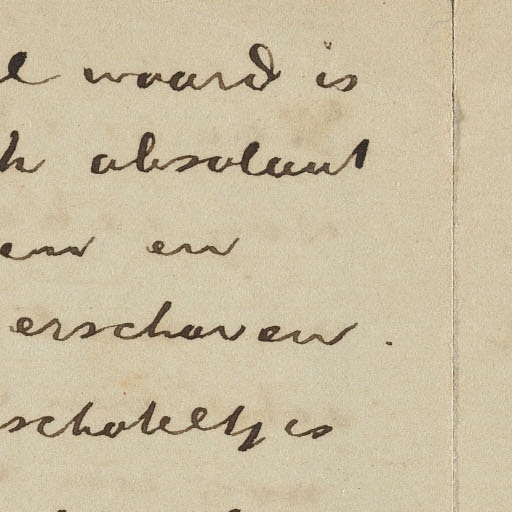 l waard is
h absoluut
en en
erschoven.
schoteltjes